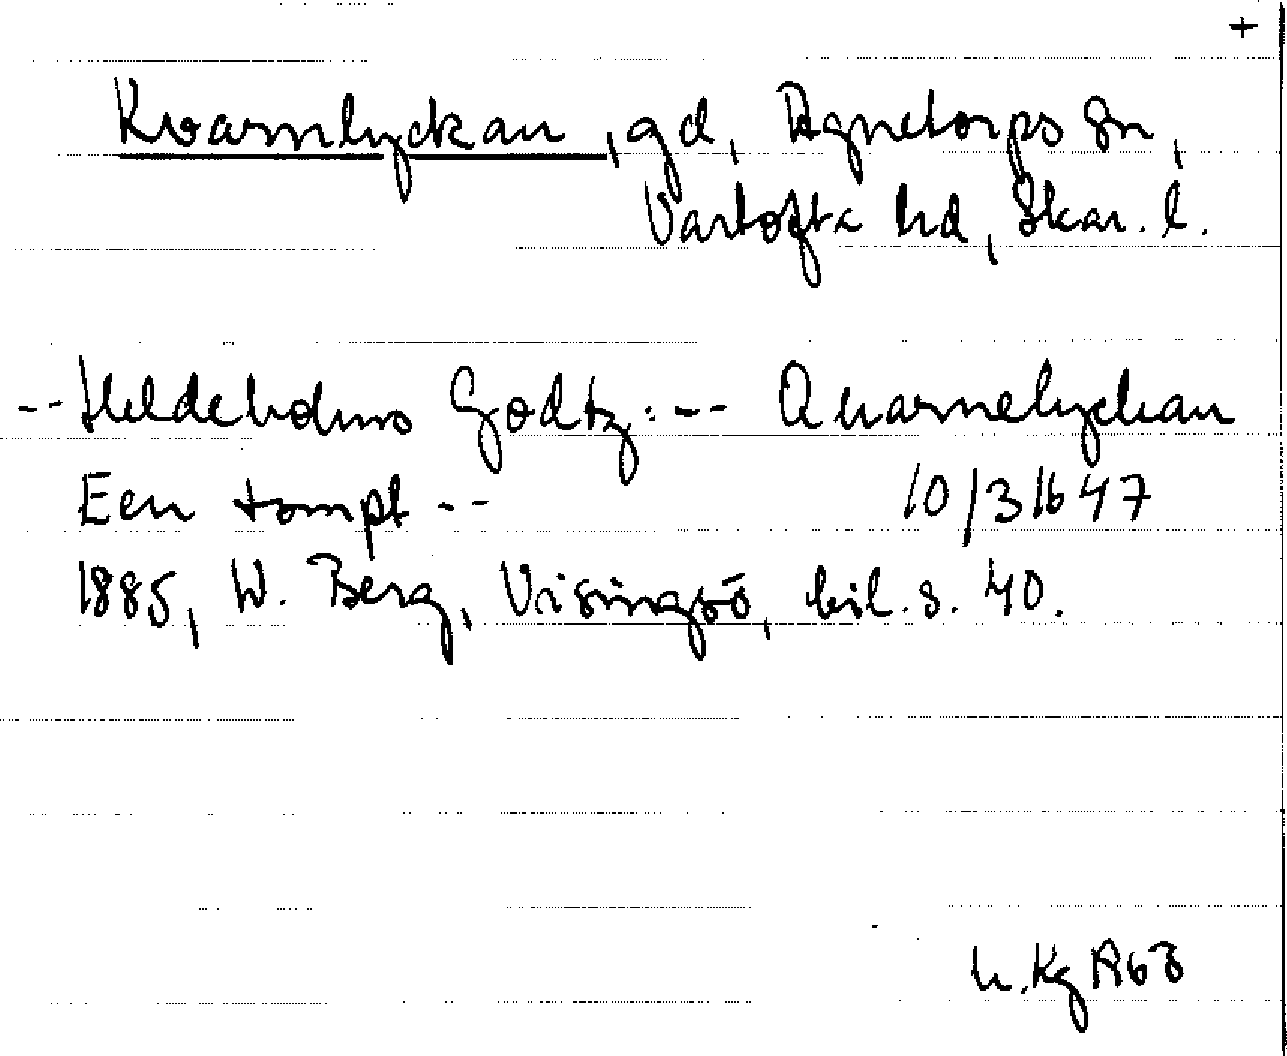 +
Kvarnlyckan, gd, Agnetorps sn,
Vartofta hd, Skar. l.
-- Heldeholms Godtz: -- Quarnelyckan
Een tompt -- 10/3 1647
1885, W. Berg, Visingsö, bil. s. 40.